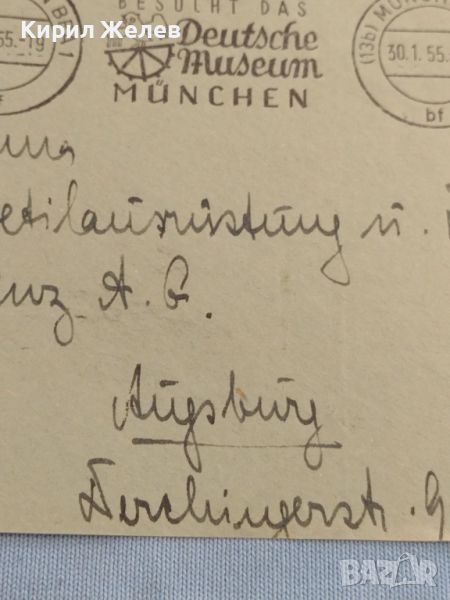 Кирил Желев
BESUCHT DAS
Deutsche
Museum
MÜNCHEN
55.-19
(13b) MÜNCH
30.1.55.
bf
etilausrüstung u.
A. G.
Augsburg
Derchingerstr. 9
BAZAR